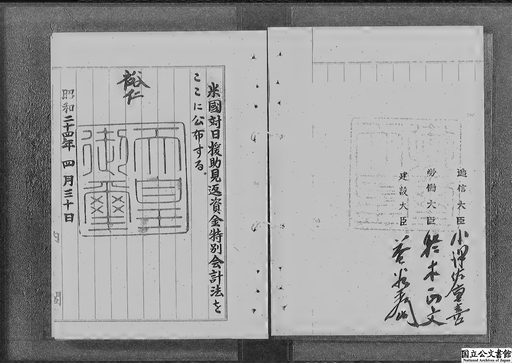 米國対日援助見返資金特別会計法を
ここに公布する。
裕仁
天皇
御璽
昭和二十四年四月三十日
逓信大臣 小澤佐重喜
労働大臣 鈴木正文
建設大臣 益谷秀次
国立公文書館
National Archives of Japan